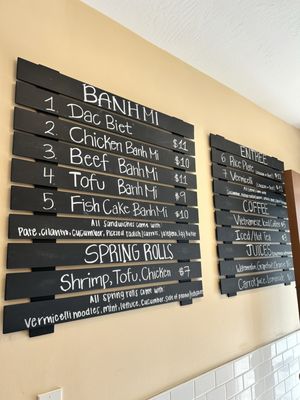 BANH MI
1. Dac Biet $11
2. Chicken Banh Mi $10
3. Beef Banh Mi $11
4. Tofu Banh Mi $9
5. Fish Cake Banh Mi $10
All Sandwiches came with:
Pate, cilantro, cucumber, pickled carrots, jalapeno, egg butter
SPRING ROLLS
Shrimp, Tofu, Chicken $7
All spring rolls come with:
Vermicelli noodles, mint, lettuce, cucumber. Side of
ENTREE
6 Rice Plate
7 Vermicelli
COFFEE
Vietnamese Coffee
Iced/Hot
JUICES
Watermelon Grapefruit
Carrot Juice Lemonade